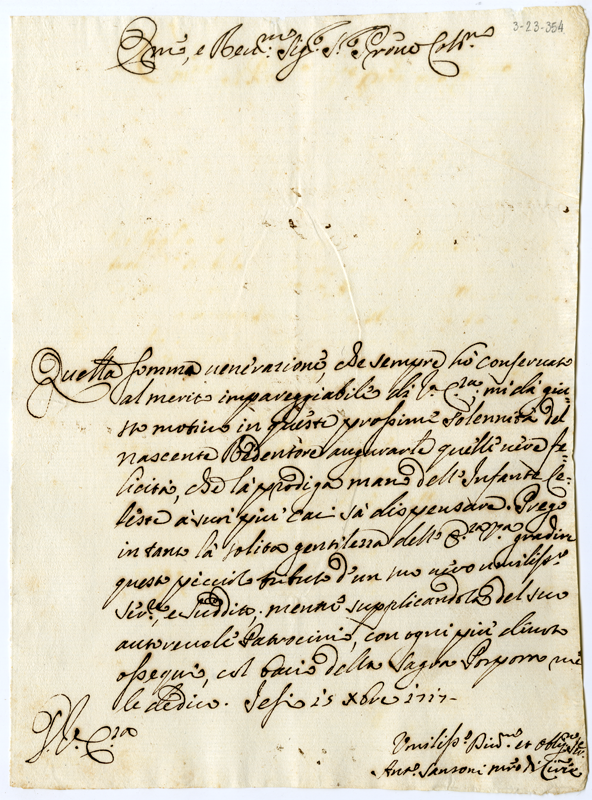 3-23-354
Em̃o, e Reu.mo Sig.r S.r Prõne Col.mo
Quella somma uenerazione, che sempre hò conseruato
al merito impareggiabile di V. E.za mi dà giu=
sto motiuo in queste prossime Solennità del
nascente Redentore augurarle quelle uere fe=
licità, che la prodiga mano dell'Infante Ce=
leste à suoi più cari sà dispensare. Prego
in tanto la solita gentilezza dell' E.za V.ra gradire
questo picciolo tributo d'un suo uero umiliss.o
Ser.e, e Suddito, mentre supplicandola del suo
autoreuole Patrocinio, con ogni più diuoto
ossequio, col bacio della Sagra Porpora me
le dedico. Iesi 15 Xbre 1717
D V. E.za
Vmiliss.o Diu.mo et Obblig.mo Ser.
Ant.o Sansoni